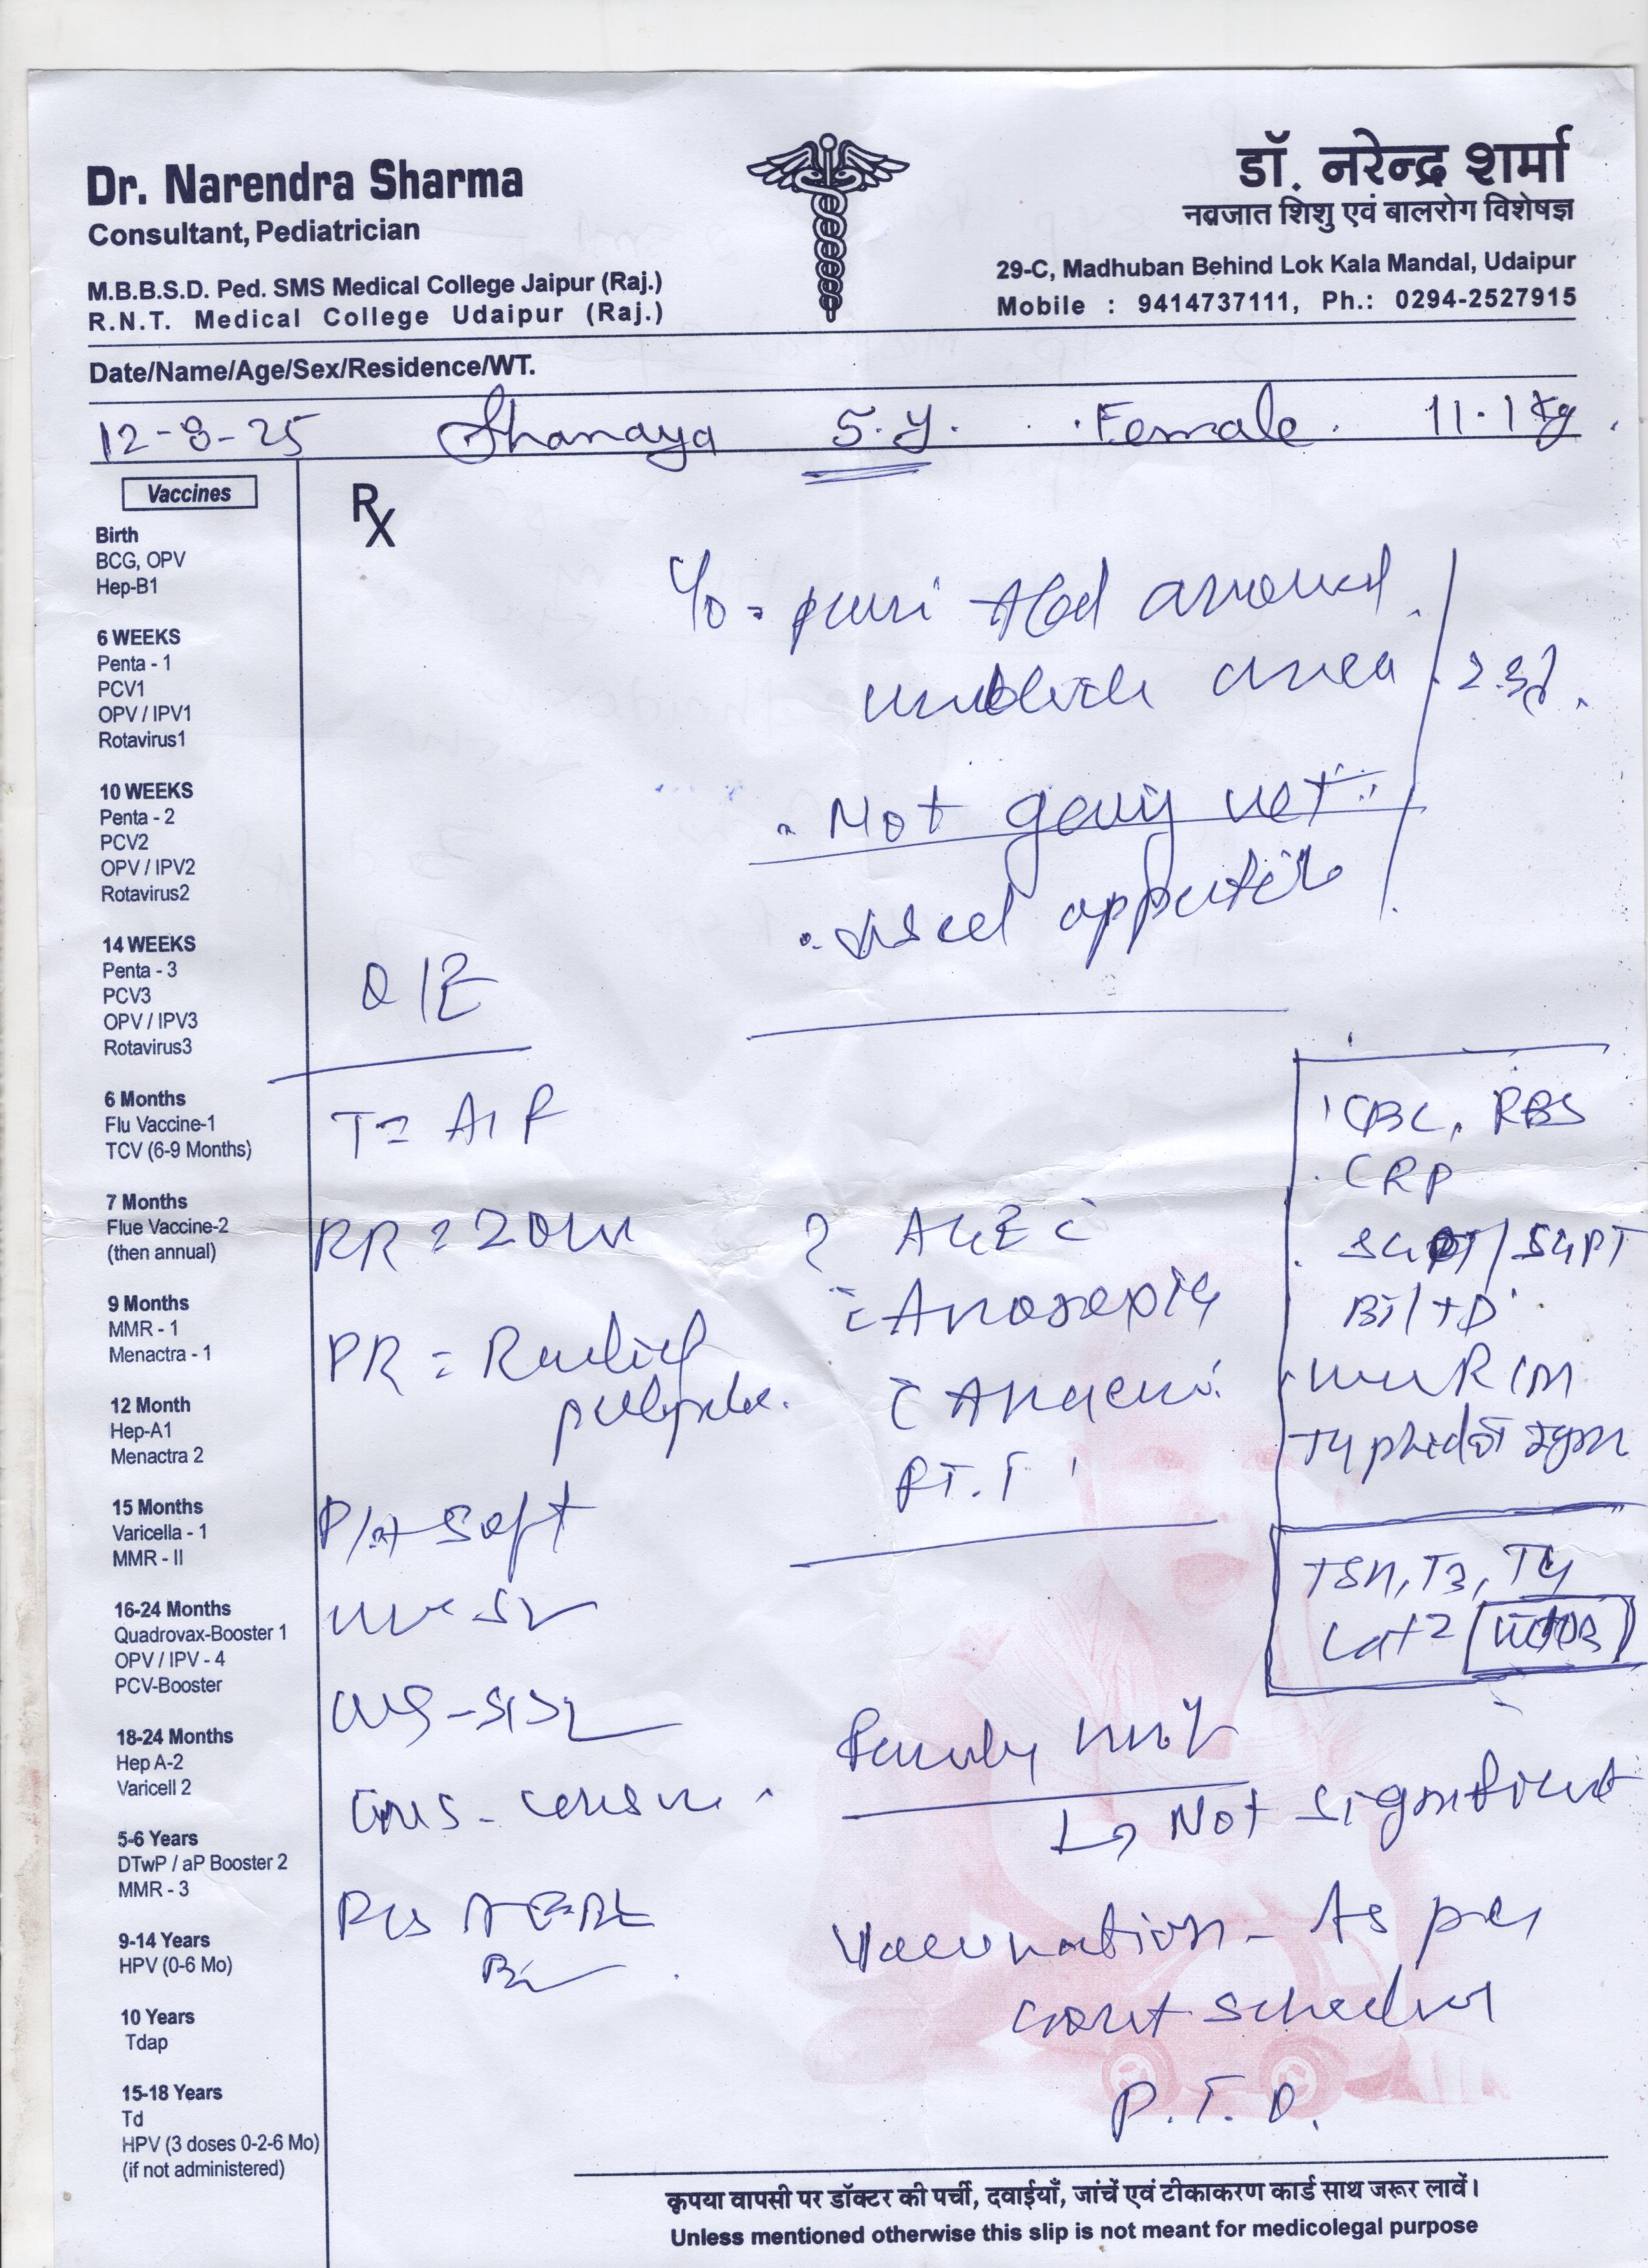 Dr. Narendra Sharma
Consultant, Pediatrician
M.B.B.S.D. Ped. SMS Medical College Jaipur (Raj.)
R.N.T. Medical College Udaipur (Raj.)
डॉ. नरेन्द्र शर्मा
नवजात शिशु एवं बालरोग विशेषज्ञ
29-C, Madhuban Behind Lok Kala Mandal, Udaipur
Mobile : 9414737111, Ph.: 0294-2527915
Date/Name/Age/Sex/Residence/WT.
12-8-25 Shanaya 5.y. Female. 11.1 kg
Vaccines
Birth
BCG, OPV
Hep-B1
6 WEEKS
Penta - 1
PCV1
OPV / IPV1
Rotavirus1
10 WEEKS
Penta - 2
PCV2
OPV / IPV2
Rotavirus2
14 WEEKS
Penta - 3
PCV3
OPV / IPV3
Rotavirus3
6 Months
Flu Vaccine-1
TCV (6-9 Months)
7 Months
Flue Vaccine-2
(then annual)
9 Months
MMR - 1
Menactra - 1
12 Month
Hep-A1
Menactra 2
15 Months
Varicella - 1
MMR - II
16-24 Months
Quadrovax-Booster 1
OPV / IPV - 4
PCV-Booster
18-24 Months
Hep A-2
Varicell 2
5-6 Years
DTwP / aP Booster 2
MMR - 3
9-14 Years
HPV (0-6 Mo)
10 Years
Tdap
15-18 Years
Td
HPV (3 doses 0-2-6 Mo)
(if not administered)
Rx
around
area
Not
O/E
T=
RR =
PR =
P/A soft
? AGE
Anorexia
CBC, RBS
CRP
SGOT/SGPT
Typhidot
TSH, T3, T4
Family
Not significant
Vaccination - As per
govt schedule
P.T.O.
कृपया वापसी पर डॉक्टर की पर्ची, दवाईयाँ, जांचें एवं टीकाकरण कार्ड साथ जरूर लावें।
Unless mentioned otherwise this slip is not meant for medicolegal purpose